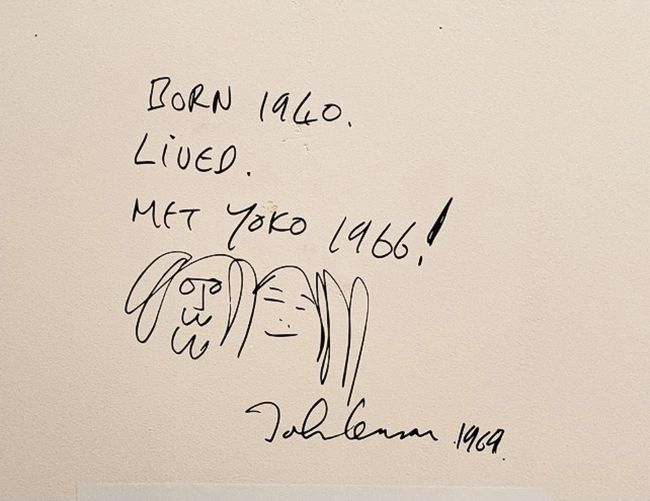 BORN 1940.
LIVED.
MET YOKO 1966!
John Lennon 1969.